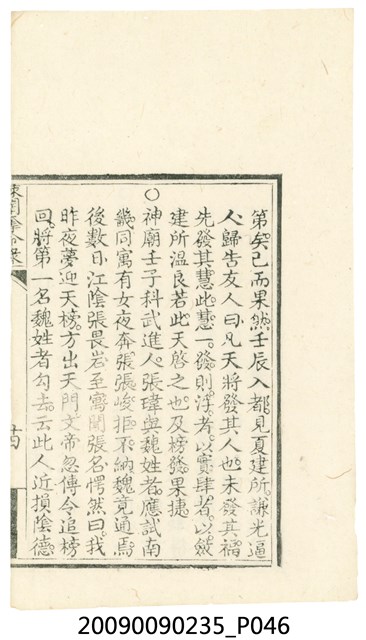 第矣已而果然壬辰入都見夏建所謙光逼
人歸告友人曰凡天將發其人也未發其福
先發其慧此慧一發則浮者以實肆者以斂
建所溫良若此天啓之也及榜發果捷
○
神廟壬子科武進人張瑋與魏姓者應試南
畿同寓有女夜奔張張峻拒不納魏竟通焉
後數日江陰張畏岩至寓聞張名愕然曰我
昨夜夢迎天榜方出天門文帝忽傳令追榜
回將第一名魏姓者勾去云此人近損陰德
20090090235_P046